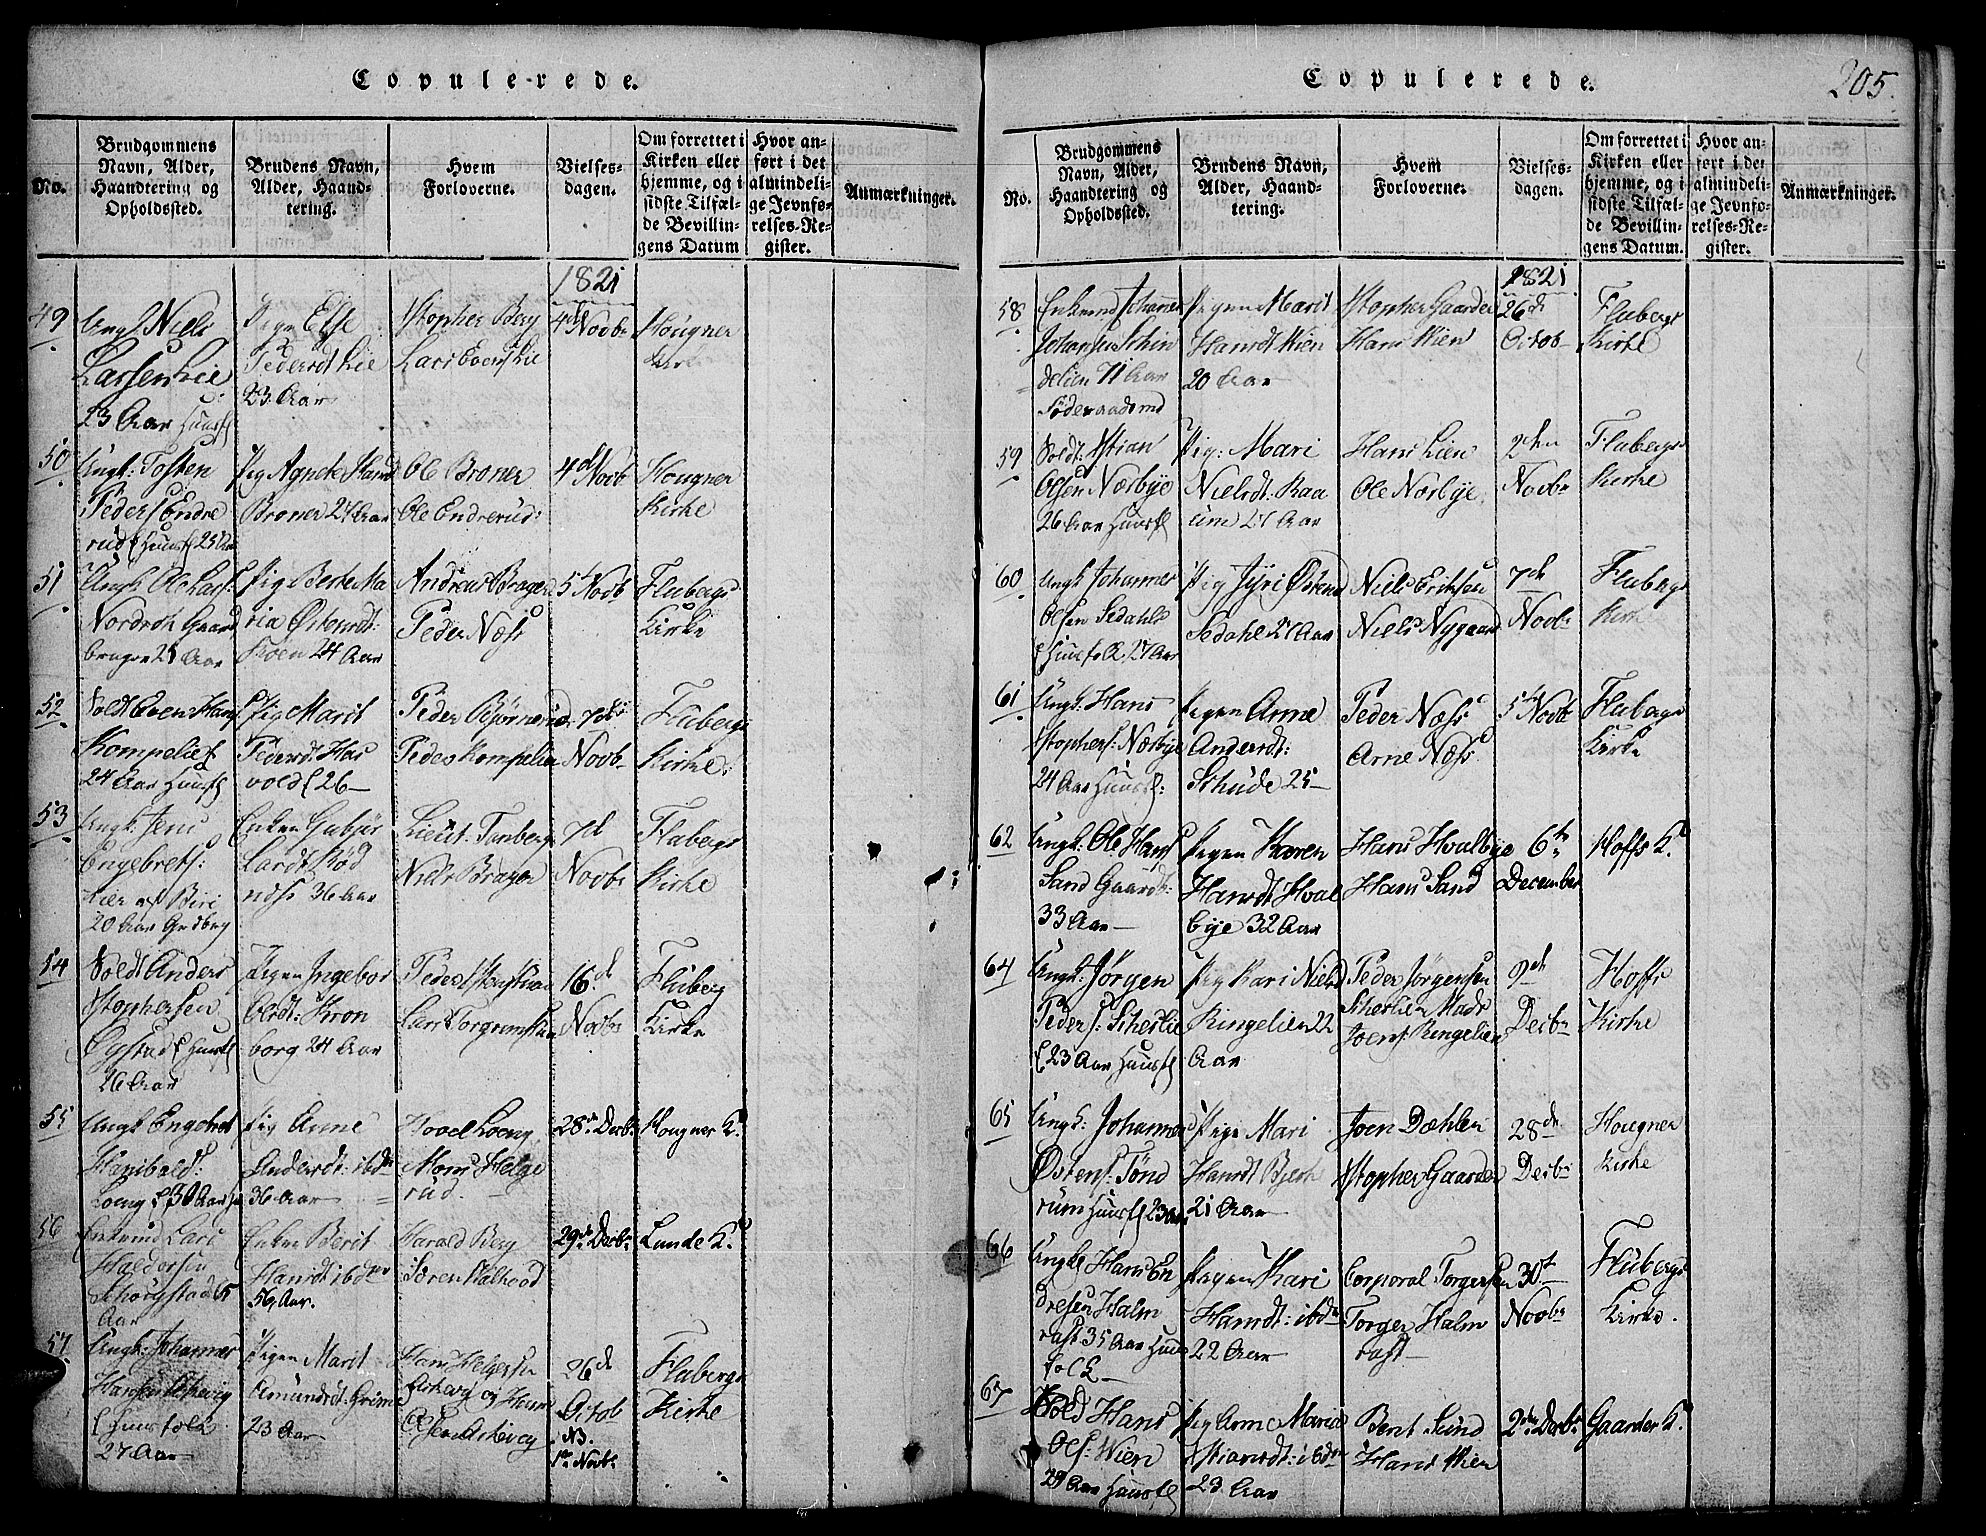 Copulerede.
No.
Brudgommens Navn, Alder, Haandtering og Opholdssted.
Brudens Navn, Alder, Haandtering.
Hvem Forloverne.
Vielsesdagen.
Om forrettet i Kirken eller hjemme, og i sidste Tilfælde Bevillingens Datum
Hvor anført i det almindelige Jevnførelses-Register.
Anmærkninger.
1821
49
Ungk. Niels
Larsen Lie
23 Aar
Pigen Else
Pedersdt Lie
23 Aar
Stopher Berg
Lars Evens Lie
4d Novbr
Hougner
50
Ungk: Tosten
Peders Endre
rud 25 Aar
Pig Agnete Hansd
Broner 27 Aar
Ole Broner
Ole Endrerud:
4d Novb
Hougner
Kirke
51
Ungk Ole Lars:
Gaard
bruger 25 Aar
Pig Berte Ma
ria Østensdt:
Koen 24 Aar
Andreas Brager
Peder Næss
5t Novb
Flubergs
Kirke
52
Sold Even Hans
Kompelie
24 Aar Huusf
Pig Marit
Pedersdt Has
vold 26
Peder Bjørnerud
Peder Kompelien
7de
Novbr
Flubergs
Kirke:
53
Ungk: Jens
Engebrets:
Lier af Biri
20 Aar
Enken Gubjør
Larsdt Rød
næss 36 Aar
Lieut. Tanberg
Niels Brager
7d
Novbr
Flubergs
Kirke
54
Soldt Anders
Stophersen
Øystad Huusf
26 Aar
Pigen Ingebor
Olsdt: Kron
borg 24 Aar
Peder
Lars
16d
Novbr
Fluberg
Kirke
55
Ungk Engebret
Hanibald:
Loeng 30 Aar
Pig Anne
Andersdt: ibdm
36 Aar
Hovel Loeng
Mons Helge
rud.
28de Decbr
Hougner K.
56
Enkemd Lars
Haldorsen
Schøigstad 65
Aar
Enken Berit
Hansdt ibdm
56 Aar.
Harald Berg
Søren
29de Decbr
Lunde K.
57
Ungk: Johannes
Hansen
Huusfolk
27 Aar
Pigen Marit
Amundsdt: Grime
23 Aar
Hans Helgersen
og Hans
26d
Octob
NB.
1te Novbr
Flubergs
Kirke
Copulerede.
205.
No.
Brudgommens Navn, Alder, Haandtering og Opholdssted.
Brudens Navn, Alder, Haandtering.
Hvem Forloverne.
Vielsesdagen.
Om forrettet i Kirken eller hjemme, og i sidste Tilfælde Bevillingens Datum.
Hvor anført i det almindelige Jevnførelses-Register.
Anmærkninger.
1821
58
Enkemd Johannes
Johansen Schin
delien 71 Aar
Føderaadsmd
Pigen Marit
Hansdt Wien
20 Aar
Stopher Gaarder
Hans Wien
26de
Octob
Flubergs
Kirke
59
Soldt: Stian
Olsen Nørbye
26 Aar Huusf
Pig: Mari
Nielsdt: Raa
um 27 Aar
Hans Lien
Ole Nørbye.
2den
Novbr
Flubergs
Kirke
60
Ungk Johannes
Olsen Sedahls
Huusfolk 27 Aar
Pig Jyri Østensd
Sedahl 27 Aar
Niels Eriksen
Niels Nygaard
7de
Novbr
Flubergs
Kirke
61
Ungk: Hans
Stophers: Nørbye
24 Aar Huusf:
Pigen Anne
Andersdt:
Schude 25
Peder Næss
Arne Næss
5te Novb
Flubergs
Kirke
62
Ungk: Ole Hans
Sand Gaardb:
33 Aar
Pigen Karen
Hansdt Hval
bye 32 Aar
Hans Hvalbye
Hans Sand
6te
December
Hoffs K.
64
Ungk: Jørgen
Peders: Scherlie
23 Aar Huusf
Pig Kari Nielsd
Ringelien 22
Aar
Peder Jørgensen
Scherlien Mads
Joens: Ringelien
9de
Decbr
Hoffs
Kirke
65
Ungk: Johannes
Østens: Tönd
rum Huusf 23 Aar
Pigen Mari
Hansdt
21 Aar
Joen Dæhlen
Stopher Gaarder
28de
Decbr
Hougner
Kirke
66
Ungk Hans En
dresen Halm
rast 35 Aar Huus
folk
Pigen Kari
Hansdt: ibdm
22 Aar
Corporal Torgersen
Torger Halm
rast
30t
Novbr
Flubergs
Kirke.
67
Sold Hans
Ols: Wien
29 Aar Huusf
Pig Anne Maria
Stiansdt: ibdm
23 Aar
Bent Lund
Hans Wien
2den Decbr
Gaarder K.